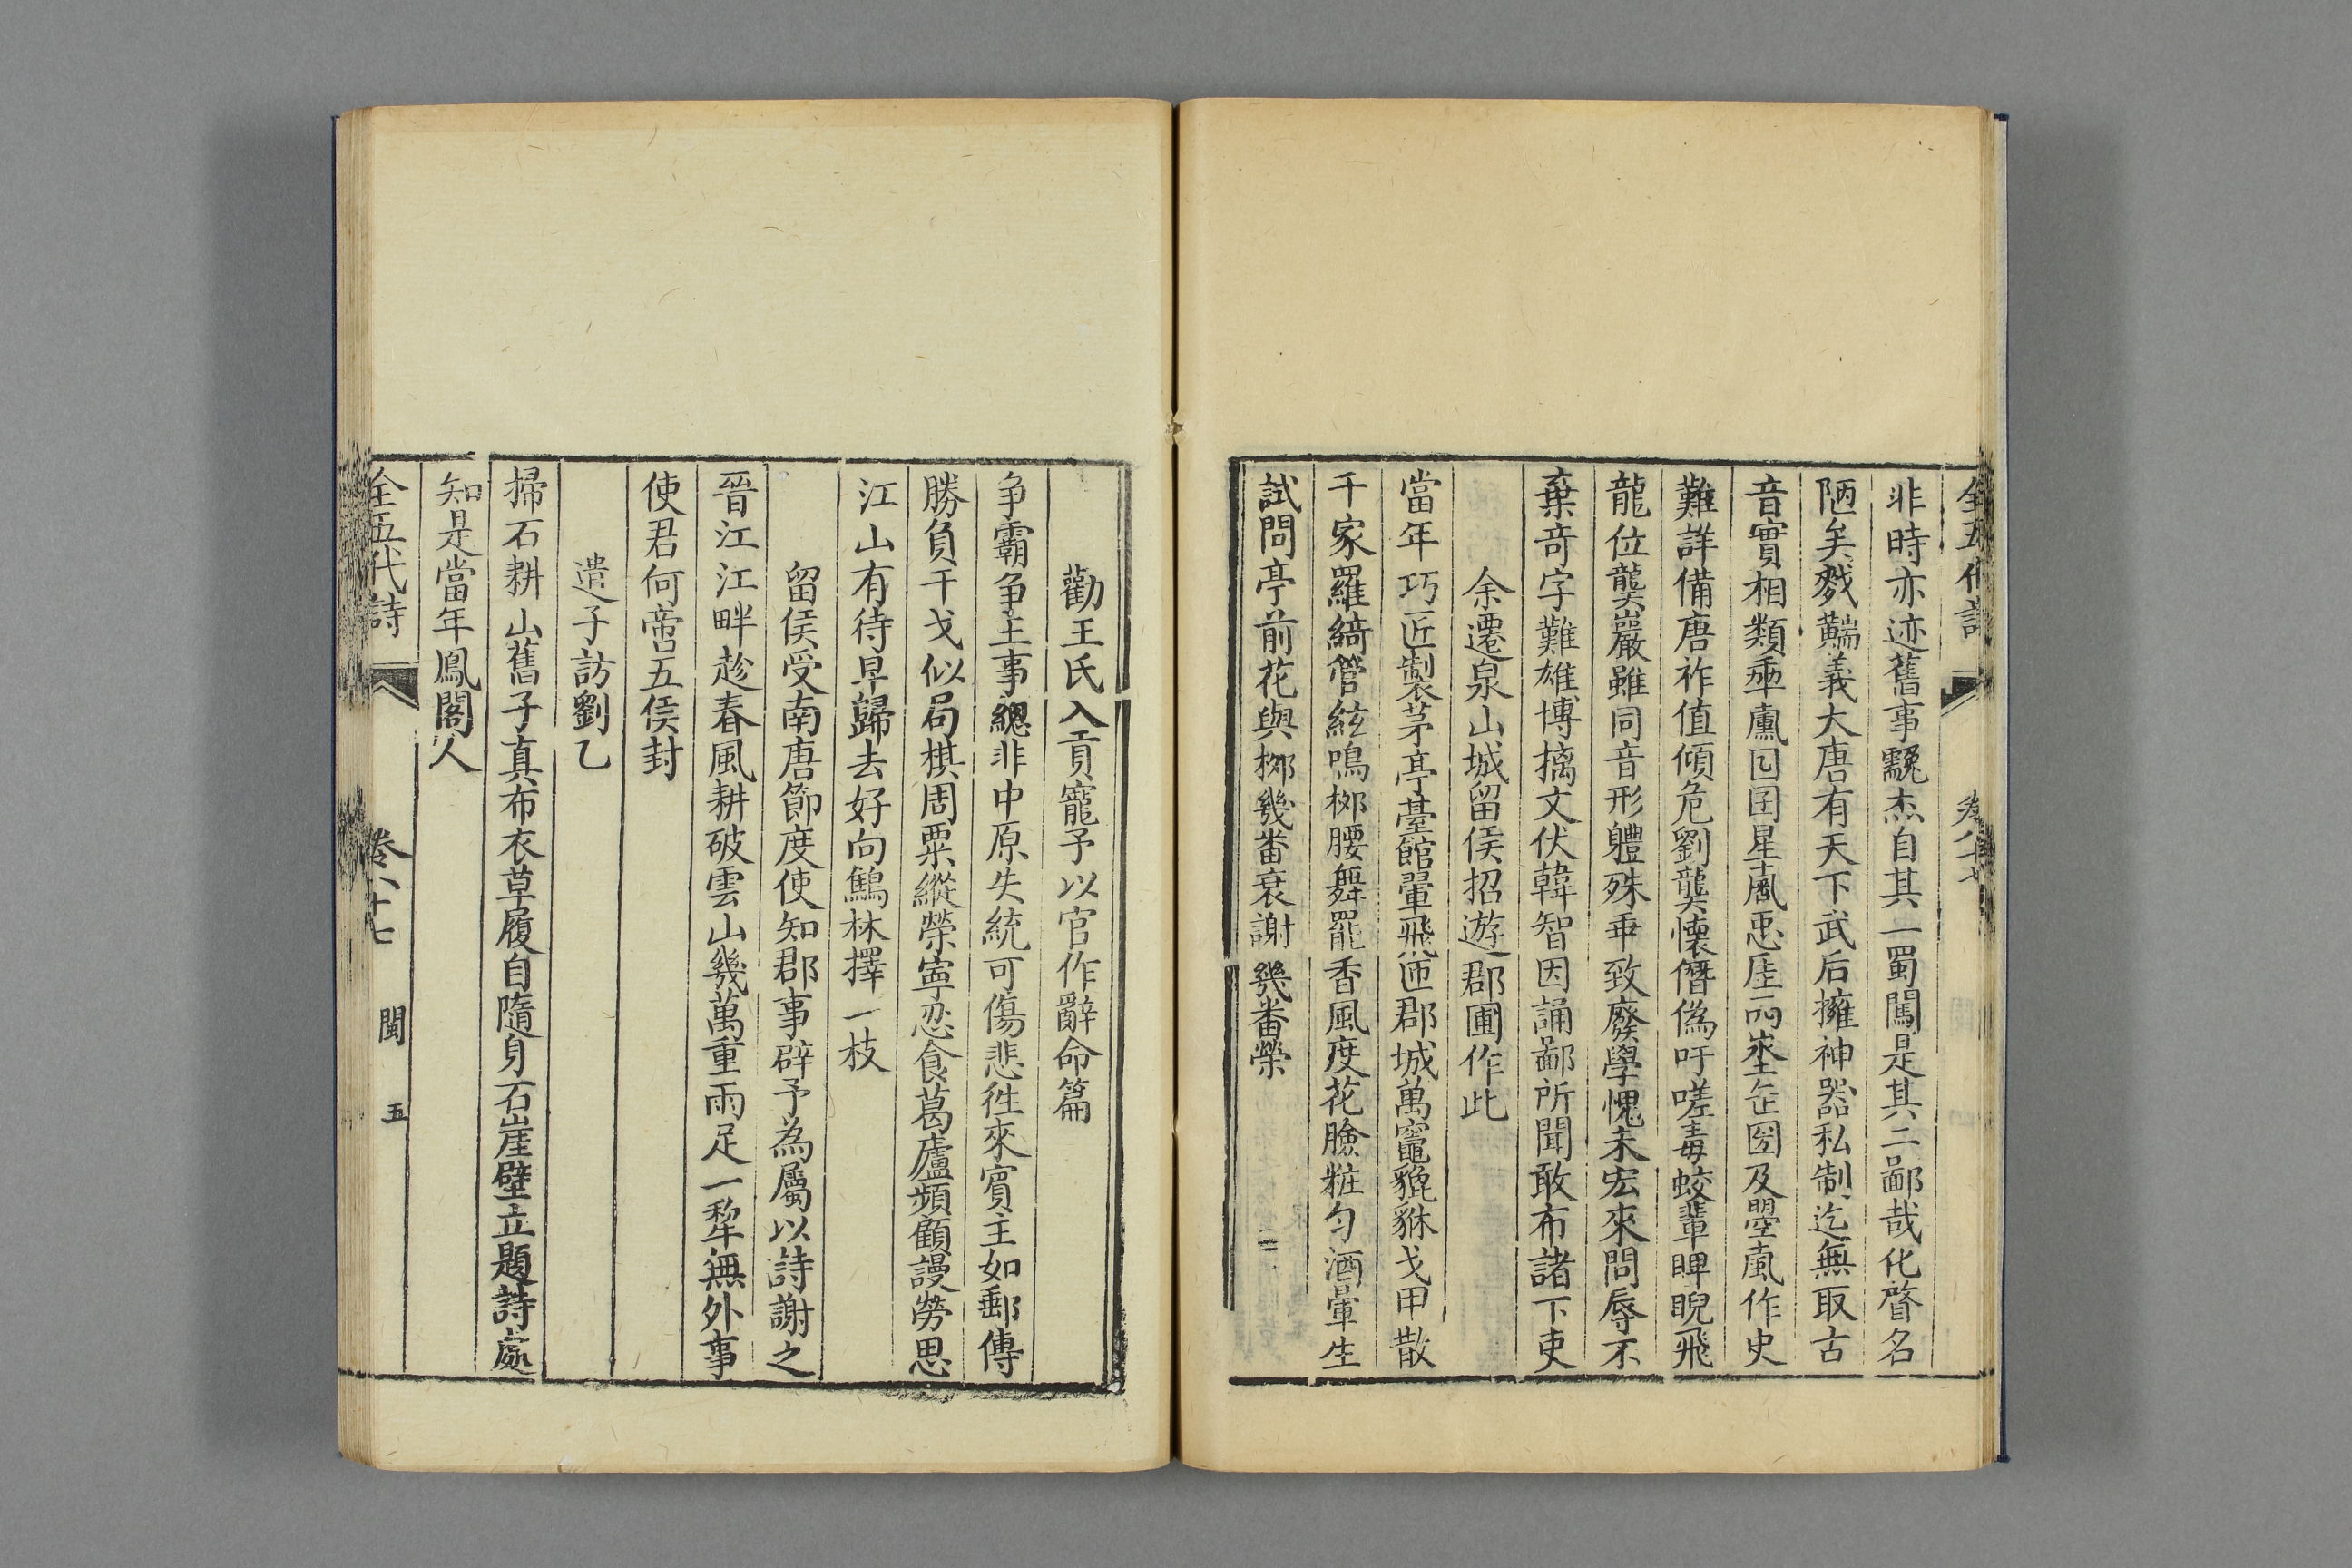 全五代詩 卷八十七
非時亦迹舊事騩杰自其一蜀闖是其二鄙哉化䁈名
陋矣戮䵎義大唐有天下武后擁神器私制迄無取古
音實相類𠦚𤊙囙囝星𠡦𢘑𤯔𠀑埊𠙺圀及曌𠡦作史
難詳備唐祚值傾危劉龑懷僭偽吁嗟毒蛟輩睥睨飛
龍位龑巖雖同音形體殊乖致廢學愧未宏來問辱不
棄奇字難雄博摛文伏韓智因誦鄙所聞敢布諸下吏
余遷泉山城留侯招遊郡圃作此
當年巧匠製茅亭臺館翬飛匝郡城萬竈貔貅戈甲散
千家羅綺管絃鳴栁腰舞罷香風度花臉粧勻酒暈生
試問亭前花與栁幾畨衰謝幾番榮
勸王氏入貢寵予以官作辭命篇
爭霸爭王事總非中原失統可傷悲徃來賓主如郵傳
勝負干戈似局棋周粟縱榮寧忍食葛廬頻顧謾勞思
江山有待早歸去好向鷦林擇一枝
留侯受南唐節度使知郡事辟予為屬以詩謝之
晉江江畔趁春風耕破雲山幾萬重雨足一犂無外事
使君何啻五侯封
遣子訪劉乙
掃石耕山舊子真布衣草履自隨身石崖壁立題詩處
知是當年鳳閣人
全五代詩 卷八十七 閩 五